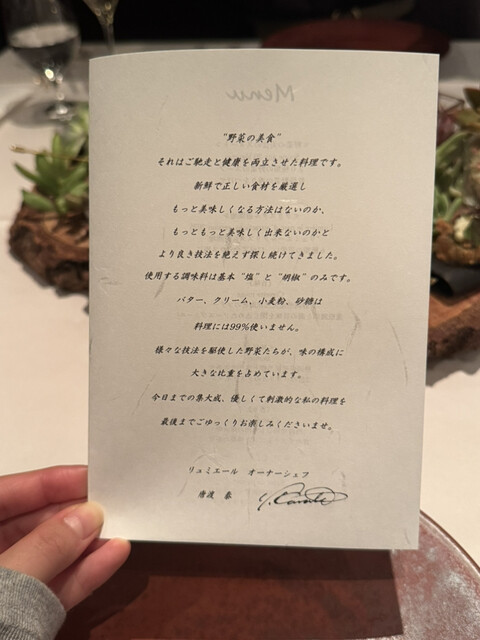 "野菜の美食"
それはご馳走と健康を両立させた料理です。
新鮮で正しい食材を厳選し
もっと美味しくなる方法はないのか、
もっともっと美味しく出来ないのかと
より良き技法を絶えず探し続けてきました。
使用する調味料は基本"塩"と"胡椒"のみです。
バター、クリーム、小麦粉、砂糖は
料理には99%使いません。
様々な技法を駆使した野菜たちが、味の構成に
大きな比重を占めています。
今日までの集大成、優しくて刺激的な私の料理を
最後までごゆっくりお楽しみくださいませ。
リュミエール オーナーシェフ
唐渡 泰
Menu